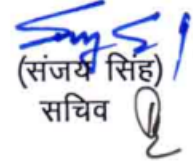 (संजय सिंह)
सचिव